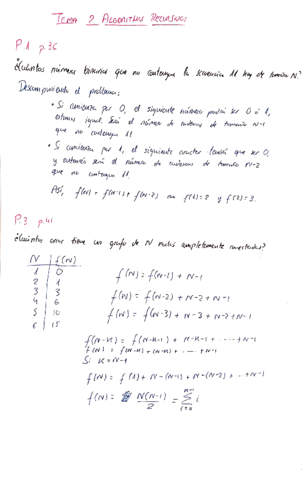 TEMA 2 ALGORITMOS RECURSIVOS
P.1 p.36
¿Cuántos números binarios que no contengan la secuencia 11 hay de tamaño N?
Descomponiendo el problema:
• Si comienza por 0, el siguiente número podrá ser 0 ó 1,
estamos igual. Será el número de cadenas de tamaño N-1
que no contengan 11.
• Si comienza por 1, el siguiente caracter tendrá que ser 0
y entonces será el número de cadenas de tamaño N-2
que no contengan 11.
Así, f(N) = f(N-1) + f(N-2) con f(1)=2 y f(2)=3.
P.3 p.41
¿Cuántas tiene un grafo de N nodos completamente conectados?
N f(N)
1 0
2 1
3 3
4 6
5 10
6 15
f(N) = f(N-1) + N-1
f(N) = f(N-2) + N-2 + N-1
f(N) = f(N-3) + N-3 + N-2 + N-1
f(N-k) = f(N-k-1) + N-k-1 + ... + N-1
f(N) = f(N-k) + (N-k) + ... + N-1
Si k = N-1
f(N) = f(1) + N-(N-1) + N-(N-2) + ... + N-1
f(N) = N(N-1)/2 = Σ i